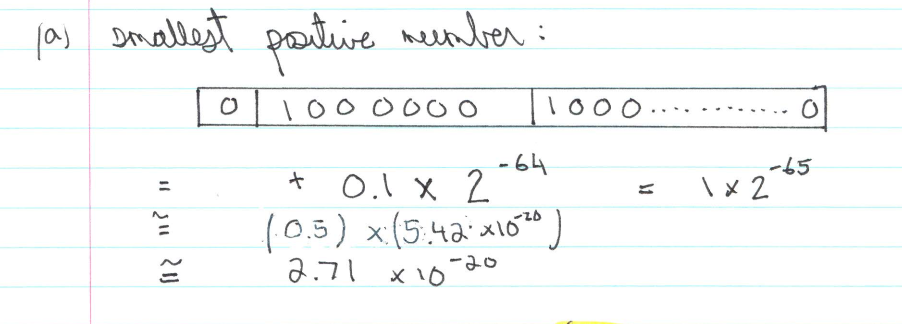 (a) smallest positive number :
0 | 1000000 | 1000............. 0
= + 0.1 x 2^-64 = 1 x 2^-65
≅ (0.5) x (5.42 x 10^-20)
≅ 2.71 x 10^-20